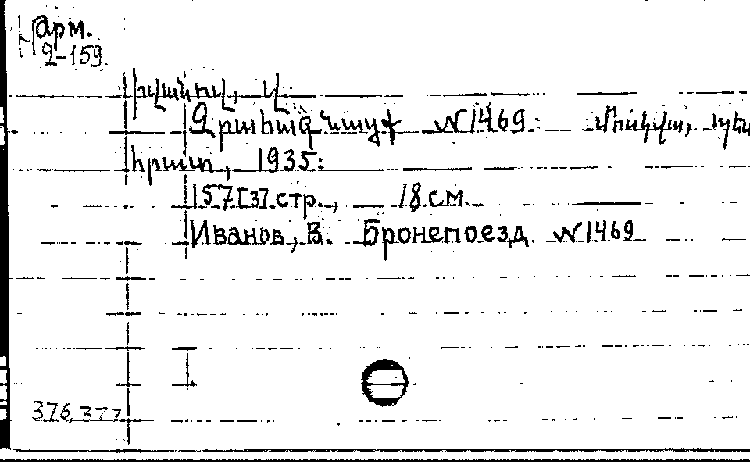 Арм.
2-159.
Իվանով, Վ.
Զրահագնացք №1469: Մոսկվա, պետ
հրատ, 1935:
157[3] стр., 18 см.
Иванов, В. Бронепоезд №1469
376,377